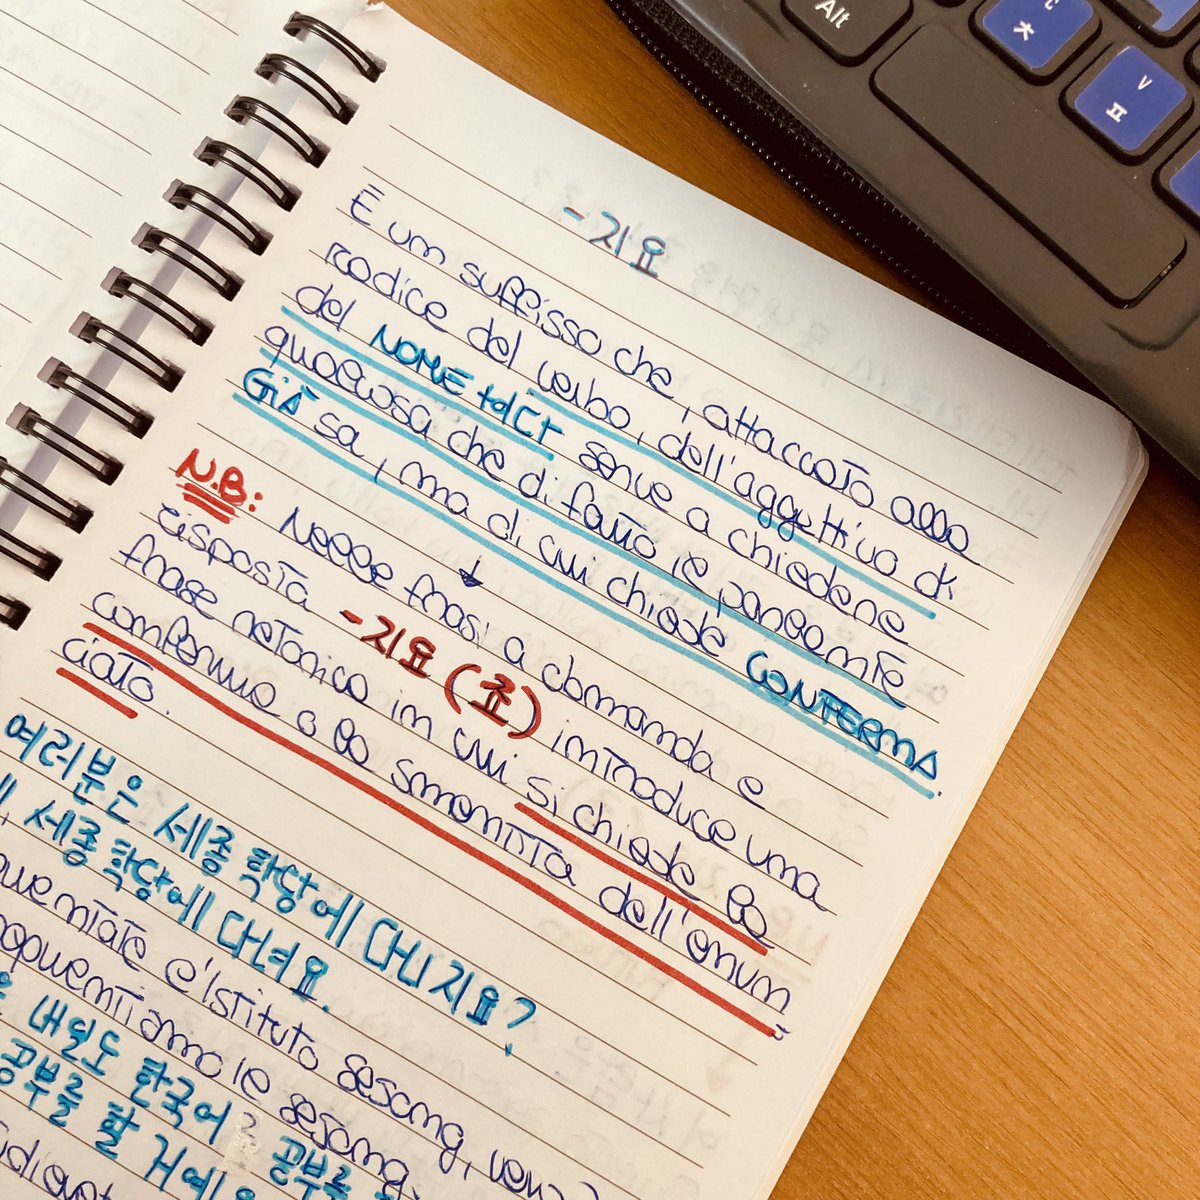 -지요
È un suffisso che, attaccato alla
radice del verbo, dell'aggettivo o
del NOME + 이다 serve a chiedere
qualcosa che di fatto il parlante
GIÀ sa, ma di cui chiede CONFERMA.
N.B: Nelle frasi a domanda e
risposta -지요 (죠) introduce una
frase retorica in cui si chiede la
conferma o la smentita dell'enun-
ciato.
여러분은 세종 학당에 다니지요?
세종 학당에 다녀요.
l'Istituto Sesang,
il Sesang.
내일도 한국어 공부를
공부를 할 거예요
Alt
C ㅊ
V ㅍ